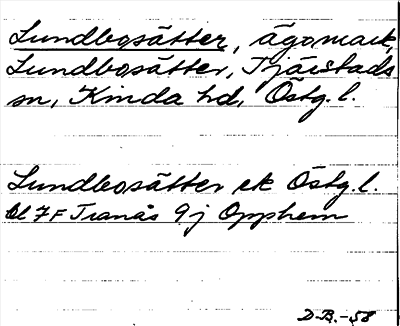 Lundbosätter, ägomark,
Lundbosätter, Tjärstads
sn, Kinda hd, Östg. l.
Lundbosätter ek Östg. l.
bl 7F Tranås 9j Opphem
D.B.-58